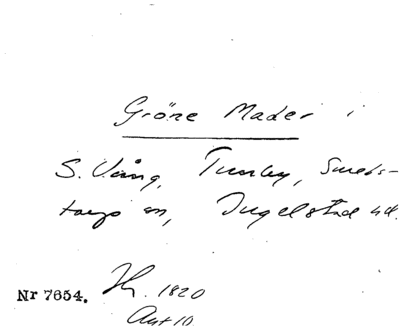 Gröne Mader i
S. Vång, Tumby, Smeds-
torps sn, Ingelstad hd.
Nr 7654. Th. 1820
Akt 10